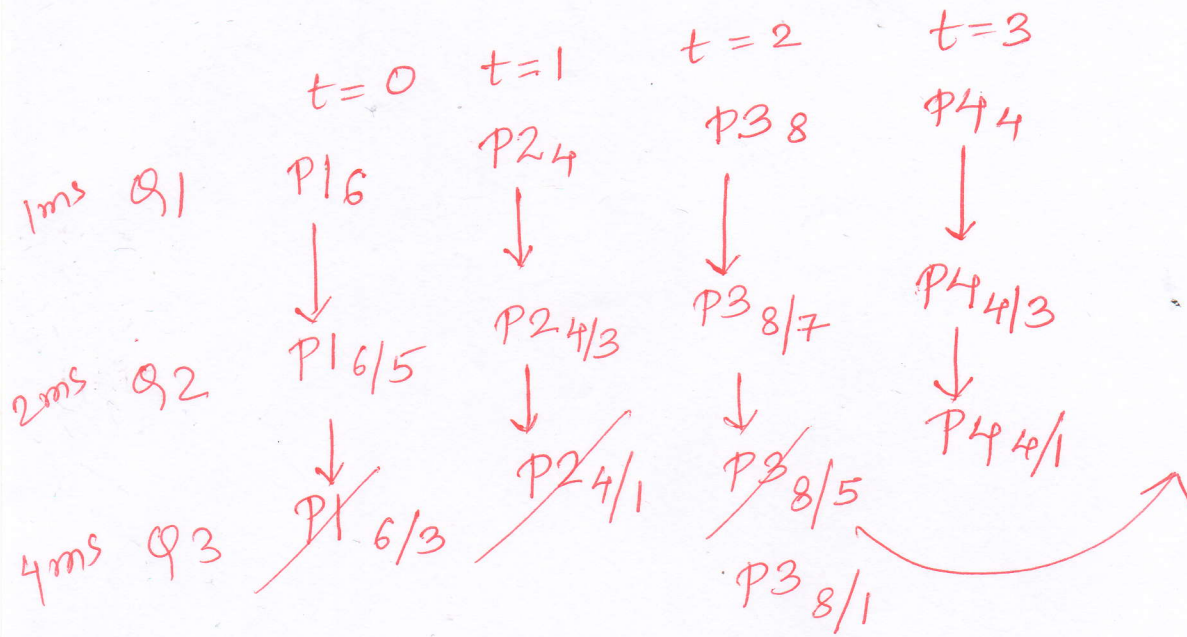 t=0 t=1 t=2 t=3
1ms Q1 P1 6 P2 4 P3 8 P4 4
2ms Q2 P1 6/5 P2 4/3 P3 8/7 P4 4/3
4ms Q3 P1 6/3 P2 4/1 P3 8/5 P4 4/1
P3 8/1